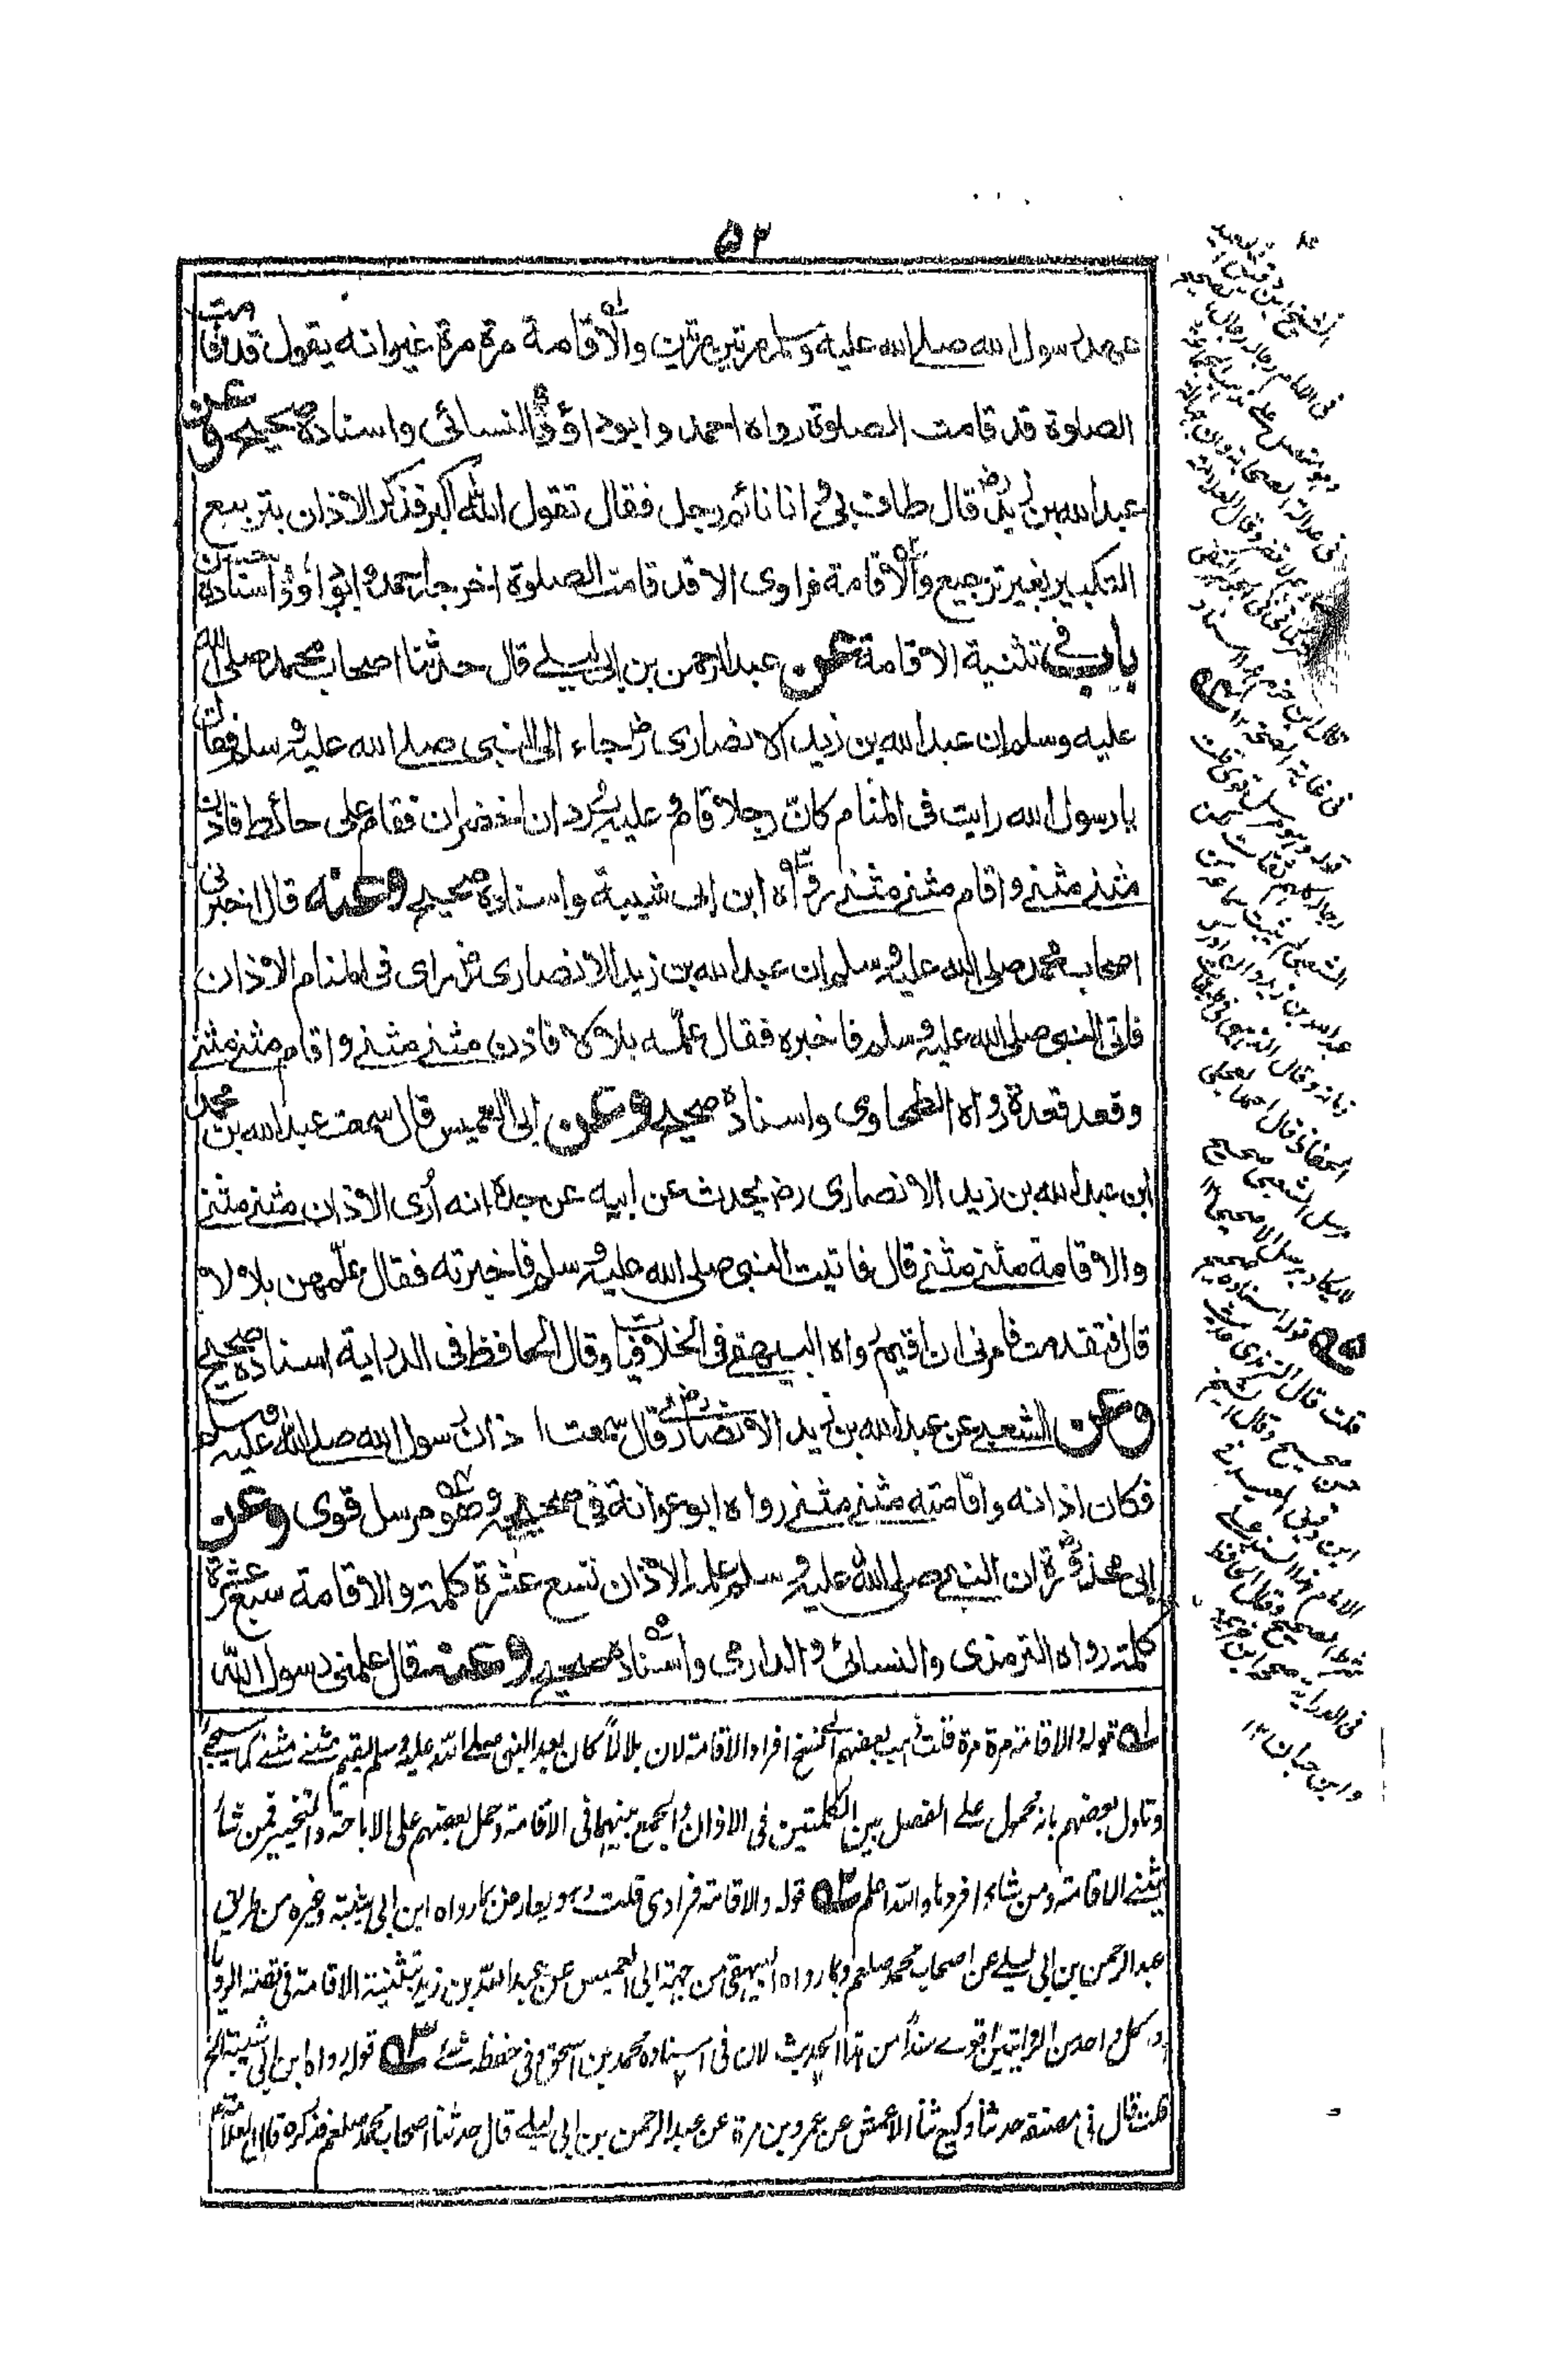 ٥٢
عهد رسول الله صلى الله عليه وسلم مرتين مرتين والاقامة مرة مرة غير انه يقول قد قامت
الصلوة قد قامت الصلوة رواه احمد وابوداؤد والنسائى واسناده صحيح وعن
عبدالله بن زيد رض قال طاف بى وانا نائم رجل فقال تقول الله اكبر فذكر الاذان بتربيع
التكبير بغير ترجيع والاقامة فرادى الا قد قامت الصلوة اخرجه احمد وابوداؤد واسناده حسن
باب فى تثنية الاقامة عن عبدالرحمن بن ابى ليلے قال حدثنا اصحاب محمد صلى الله
عليه وسلم ان عبدالله بن زيد الانصارى رض جاء الى النبى صلى الله عليه وسلم فقال
يا رسول الله رايت فى المنام كانّ رجلا قام وعليه بردان اخضران فقام على حائط فاذن
مثنے مثنے واقام مثنے مثنے رواه ابن ابى شيبة واسناده صحيح وعنه قال اخبرنى
اصحاب محمد صلى الله عليه وسلم ان عبدالله بن زيد الانصارى رض راى فى المنام الاذان
فاتى النبى صلى الله عليه وسلم فاخبره فقال علّمه بلالا فاذن مثنے مثنے واقام مثنے مثنے
وقعد قعدة رواه الطحاوى واسناده صحيح وعن ابى العميس قال سمعت عبدالله بن محمد
ابن عبدالله بن زيد الانصارى رض يحدث عن ابيه عن جده انه اُرى الاذان مثنے مثنے
والاقامة مثنے مثنے قال فاتيت النبى صلى الله عليه وسلم فاخبرته فقال علّمهن بلالا
قال فتقدمت فامرنى ان اقيم رواه البيهقى فى الخلافيات وقال الحافظ فى الدراية اسناده صحيح
وعن الشعبے عن عبدالله بن زيد الانصارى رض قال سمعت اذان رسول الله صلى الله عليه وسلم
فكان اذانه واقامته مثنے مثنے رواه ابوعوانة فى صحيحه وهو مرسل قوى وعن
ابى محذورة رض ان النبى صلى الله عليه وسلم علمه الاذان تسع عشرة كلمة والاقامة سبع عشرة
كلمة رواه الترمذى والنسائى والدارمى واسناده صحيح وعنه قال علمنى رسول الله
له قوله والاقامة مرة مرة قلت اجيب بعضهم بنسخ افراد الاقامة لان بلالاً كان بعد النبى صلے الله عليه وسلم يقيم مثنے مثنے كما سيجئ
وتاول بعضهم بانه محمول على الفصل بين الكلمتين فى الاذان والجمع بينهما فى الاقامة وحمل بعضهم على الاباحة والتخيير فمن شاء
يثنے الاقامة ومن شاء افردها والله اعلم ٢ه قوله والاقامة فرادى قلت وهو يعارض بما رواه ابن ابى شيبة وغيره من طريق
عبدالرحمن بن ابى ليلے عن اصحاب محمد صلعم وبما رواه البيهقى من جهة ابى العميس عن عبدالله بن زيد بتثنية الاقامة فى قصة الرويا
وكل واحد من الروايتين اقوے سنداً من هذا الحديث لان فى اسناده محمد بن اسحق وفى حفظه شئ ٣ه قوله رواه ابن ابى شيبة الخ
قلت قال فى مصنفه حدثنا وكيع ثنا الاعمش عن عمرو بن مرة عن عبدالرحمن بن ابى ليلے قال حدثنا اصحاب محمد صلعم فذكره قال العلامة
الشيخ ابن دقيق العيد
فى الامام رجاله رجال الصحيح
قال ابن حزم هذا اسناد
فى غاية الصحة ١٢
قوله وهو مرسل قوى قلت
رجاله كلهم ثقات لكن
الشعبى لم يثبت سماعه من
عبدالله بن زيد
مرسل الشعبى صحيح
لا يكاد يرسل الا صحيحا ١٢
٥ه قوله اسناده صحيح
قلت قال الترمذى حديث
حسن صحيح وقال الشيخ
ابن دقيق العيد فى
الامام هذا السند على
شرط الصحيح وقال الحافظ
فى الدراية صححه ابن خزيمة
وابن حبان ١٢